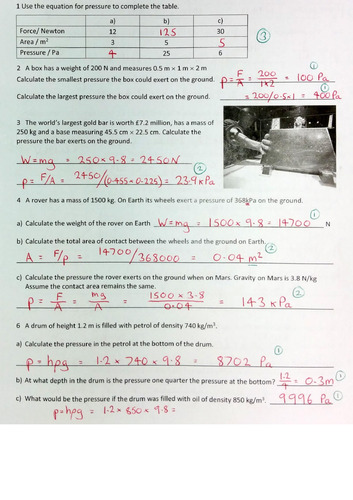 1 Use the equation for pressure to complete the table.
a) b) c)
Force/ Newton 12 125 30
Area / m² 3 5 5
Pressure / Pa 4 25 6
③
2 A box has a weight of 200 N and measures 0.5 m × 1 m × 2 m
Calculate the smallest pressure the box could exert on the ground. p = F/A = 200/1×2 = 100 Pa ①
Calculate the largest pressure the box could exert on the ground. = 200/0.5×1 = 400 Pa ①
3 The world's largest gold bar is worth £7.2 million, has a mass of
250 kg and a base measuring 45.5 cm × 22.5 cm. Calculate the
pressure the bar exerts on the ground.
W = mg = 250 × 9.8 = 2450 N
p = F/A = 2450/(0.455 × 0.225) = 23.9 kPa ②
4 A rover has a mass of 1500 kg. On Earth its wheels exert a pressure of 368kPa on the ground.
a) Calculate the weight of the rover on Earth W = mg = 1500 × 9.8 = 14700 N ①
b) Calculate the total area of contact between the wheels and the ground on Earth.
A = F/p = 14700/368000 = 0.04 m² ②
c) Calculate the pressure the rover exerts on the ground when on Mars. Gravity on Mars is 3.8 N/kg
Assume the contact area remains the same.
p = F/A = mg/A = 1500 × 3.8/0.04 = 143 kPa ②
6 A drum of height 1.2 m is filled with petrol of density 740 kg/m³.
a) Calculate the pressure in the petrol at the bottom of the drum.
p = hρg = 1.2 × 740 × 9.8 = 8702 Pa ①
b) At what depth in the drum is the pressure one quarter the pressure at the bottom? 1.2/4 = 0.3m ①
c) What would be the pressure if the drum was filled with oil of density 850 kg/m³. 9996 Pa ①
p = hρg = 1.2 × 850 × 9.8 =